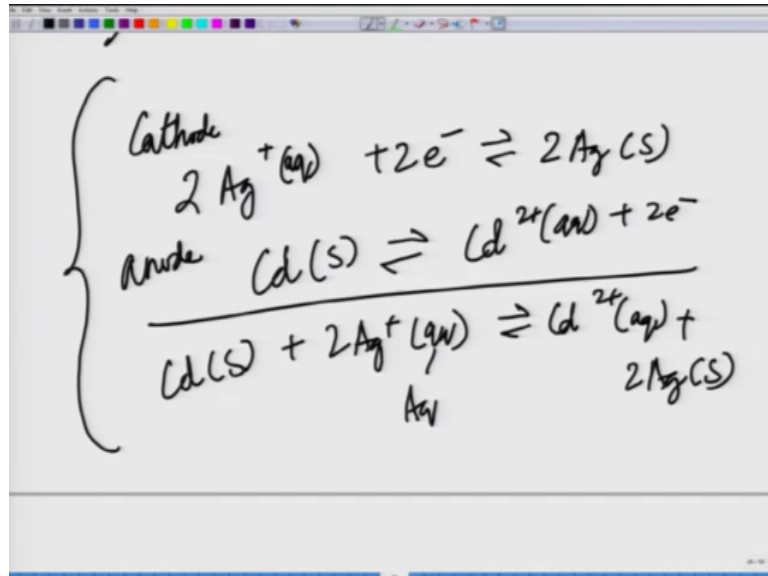 Cathode
2 Ag⁺(aq) + 2e⁻ ⇌ 2Ag(s)
anode Cd(s) ⇌ Cd²⁺(aq) + 2e⁻
Cd(s) + 2Ag⁺(aq) ⇌ Cd²⁺(aq) +
2Ag(s)
Aq